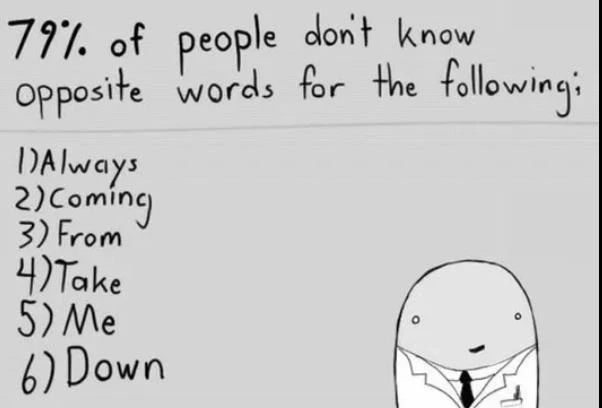 79% of people don't know
opposite words for the following;
1)Always
2)Coming
3) From
4)Take
5) Me
6) Down